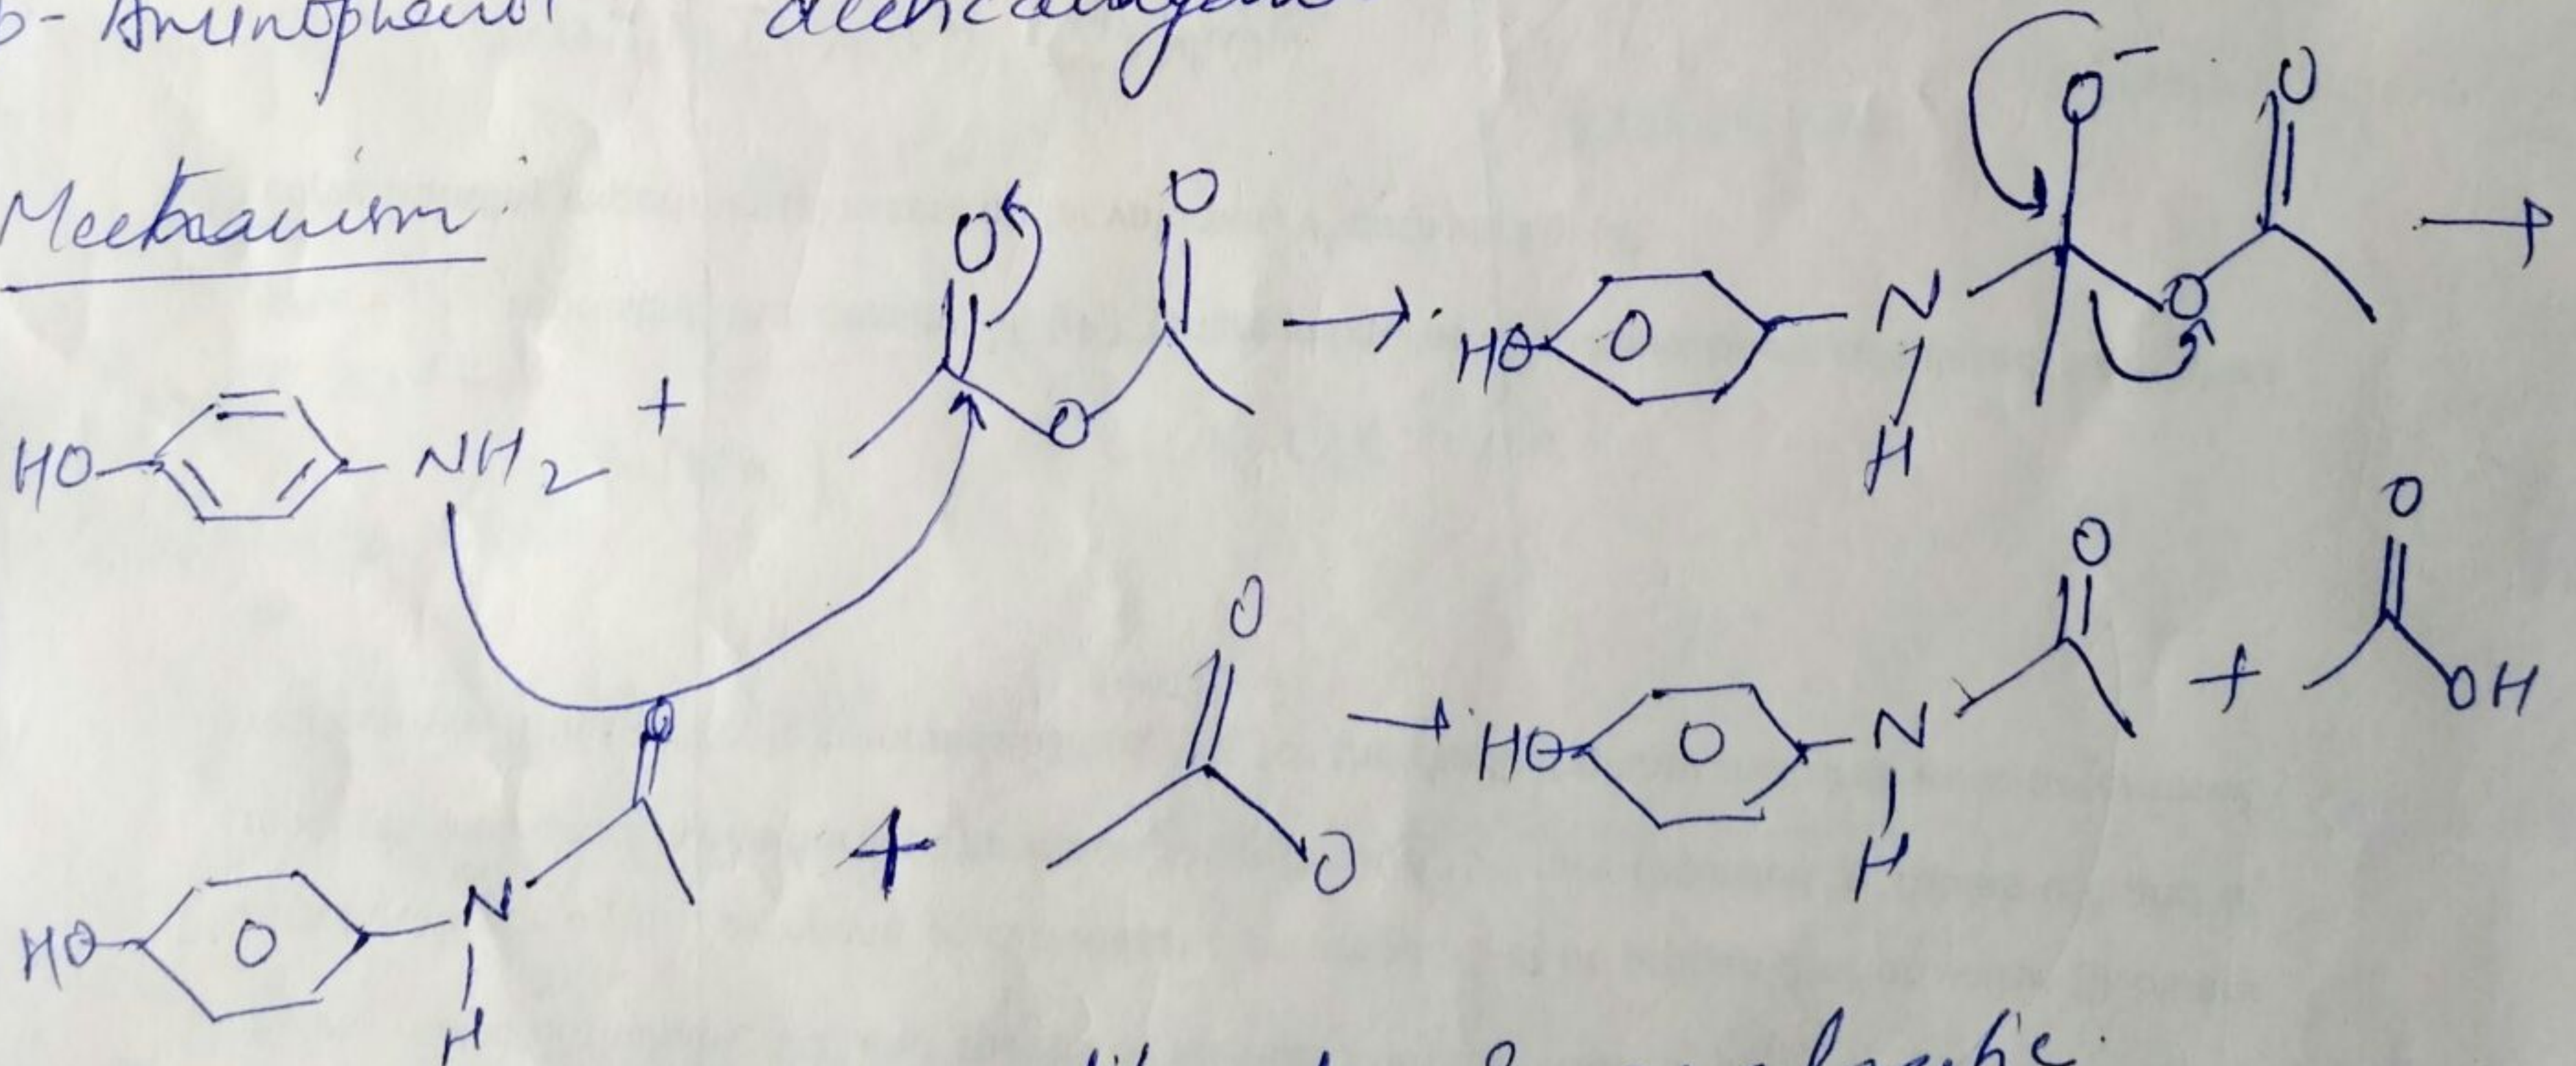 p-Aminophenol
Mechanism:
O O
HO NH2 + O →
O- O
HO N O →
H
O O
HO N + O →
H
O O
HO N + OH
H